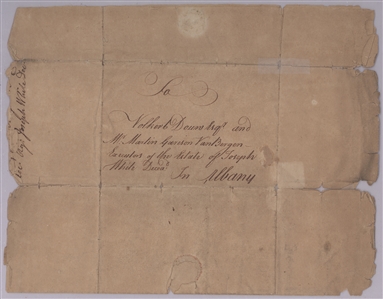 To
Volkert Douw Esqr. and
Mr. Marten Garritse Van Bergen
Executors of the Estate of Joseph
White Decd.
In Albany
Joseph White